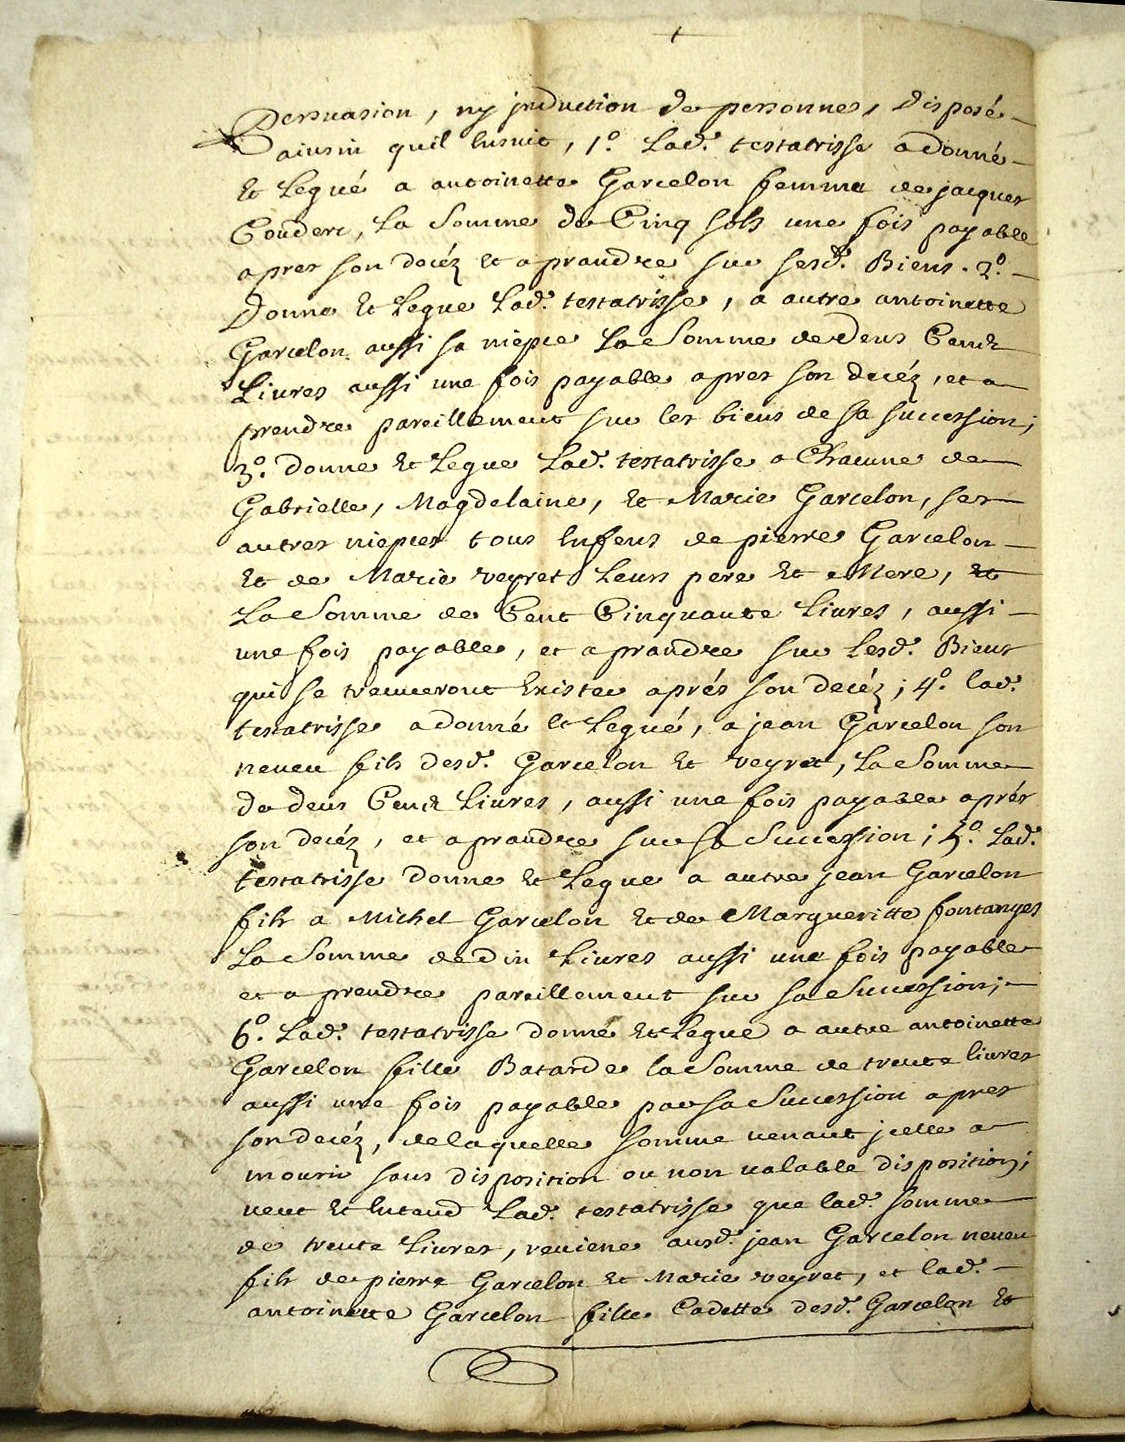 Persuasion, ny jnduction de personnes, disposé
ainsin quil Ensuit, 1º. Lad. testatrisse a donné
Et Legué a antoinette Garcelon femme de jacques
Couderc, La Somme de Cinq sols une fois payable
apres son decéz et a prandre sur sesd. Biens. 2º.
Donne Et Legue Lad. testatrisse, a autre antoinette
Garcelon aussi sa niepce La Somme de Deus Cens
Livres aussi une fois payable apres son decéz, et a
prendre pareillement sur les biens de sa succession;
3º. donne Et Legue Lad. testatrisse a Chacune de
Gabrielle, Magdelaine, Et Marie Garcelon, ses
autres niepces tous Enfens de pierre Garcelon
Et de Marie veyret Leurs pere Et Mere, et
La Somme de Cent Cinquante Livres, aussi
une fois payable, et a prandre sur Lesd. Biens
qui se treuveront Exister aprés son decéz; 4º. lad.
testatrisse a donné et Legué, a jean Garcelon son
neveu fils desd. Garcelon Et veyret, La Somme
de deus Cens Livres, aussi une fois payable aprés
son decéz, et a prandre sur sa Succession; 5º. Lad.
testatrisse Donne Et Legue a autre jean Garcelon
fils a Michel Garcelon Et de Margueritte fontanges
La Somme de Dix Livres aussi une fois payable
et a prendre pareillement sur sa Succession;
6º. Lad. testatrisse donne Et Legue a autre antoinette
Garcelon fille Batarde la Somme de trente livres
aussi une fois payable par sa Succession apres
son decéz, de laquelle somme venant jcelle a
mourir sans disposition ou non valable disposition;
veut Et Entend Lad. testatrisse que lad. somme
de trente Livres, reviene ausd. jean Garcelon neveu
fils de pierre Garcelon Et Marie veyret, et lad.
antoinette Garcelon fille Cadette desd. Garcelon Et